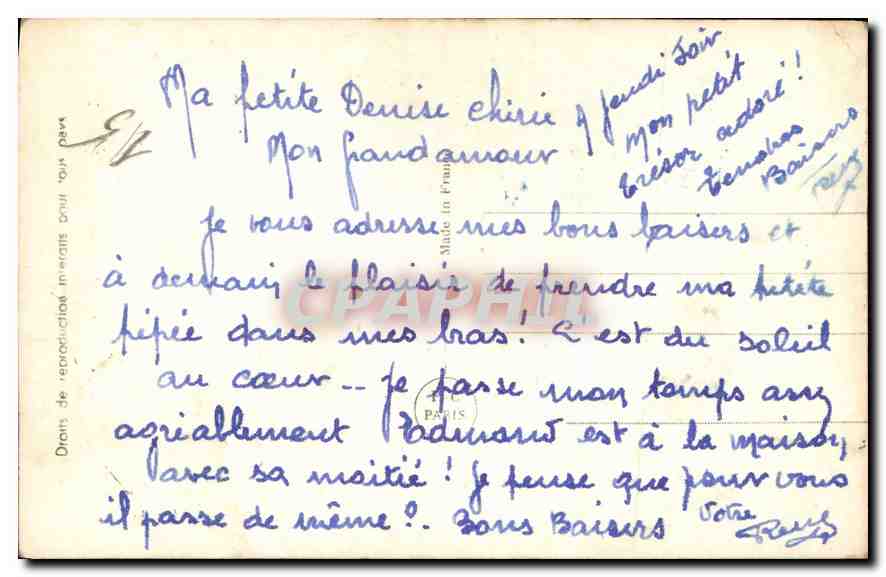 Ma petite Denise chérie
Mon Grand amour
Jeudi Soir
Mon petit
trésor adoré !
Tendres
Baisers
René
Je vous adresse mes bons baisers et
à demain, le plaisir de prendre ma petite
pépée dans mes bras ! C'est du soleil
au cœur -- Je passe mon temps assez
agréablement Edmond est à la maison,
avec sa moitié ! Je pense que pour vous
il passe de même ?. Bons Baisers Votre
René
Droits de reproduction interdits pour tous pays
Made in France
PARIS
CPAPHIL